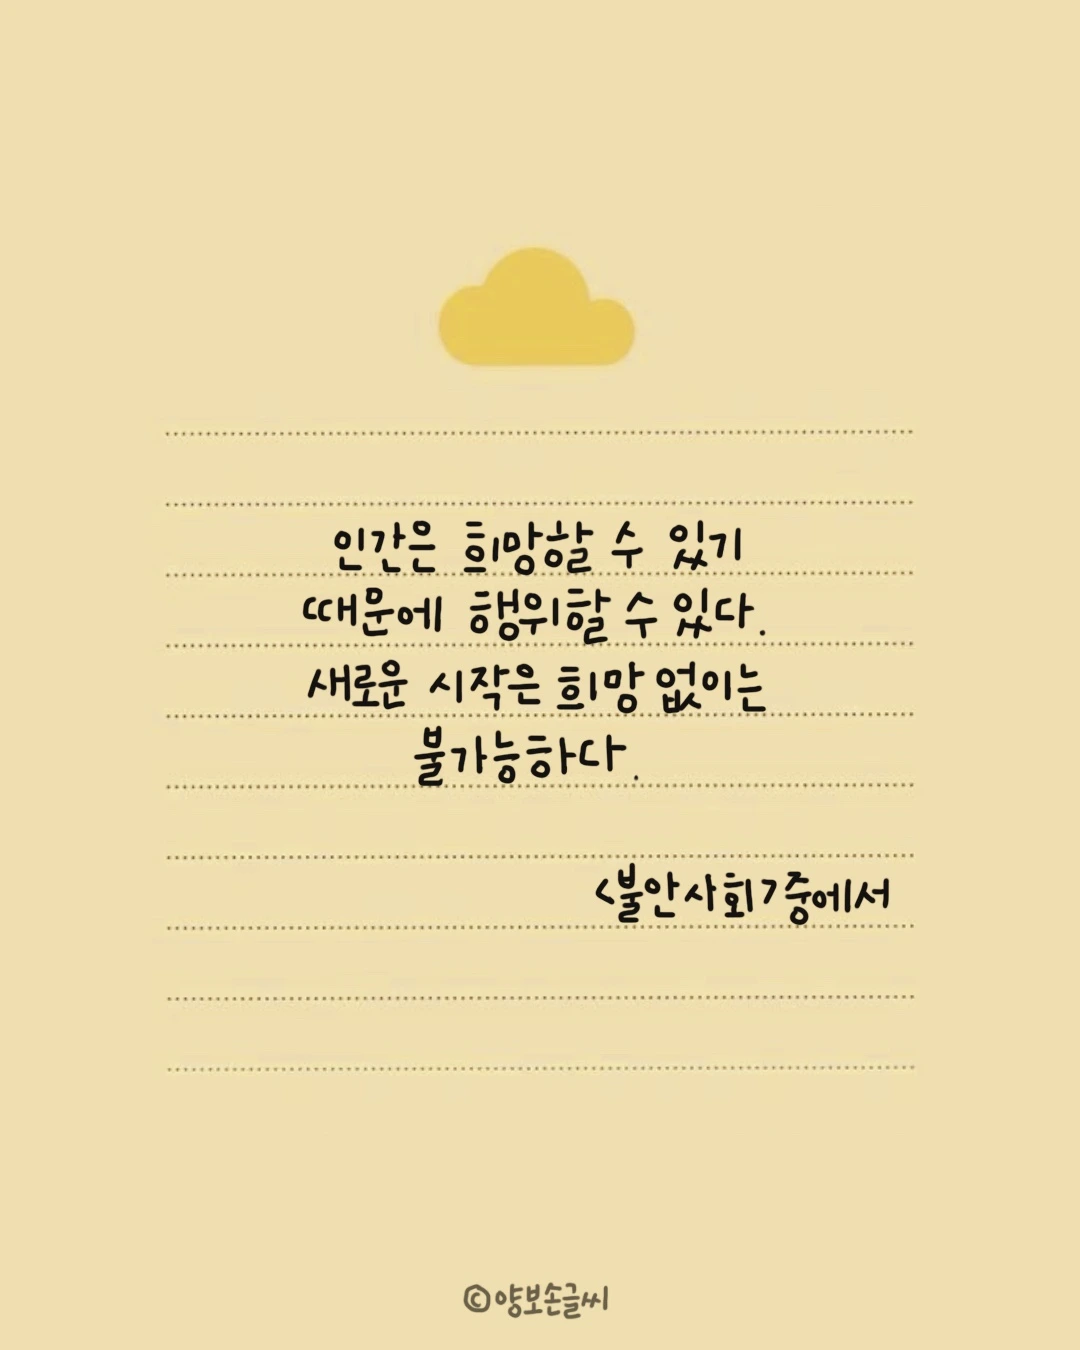 인간은 희망할 수 있기
때문에 행위할 수 있다.
새로운 시작은 희망 없이는
불가능하다.
<불안사회>중에서
©양보손글씨